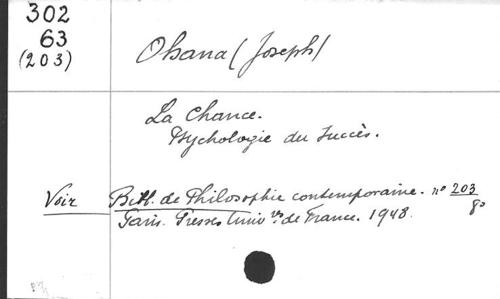 302
63
(203)
Ohana (Joseph)
La Chance.
Psychologie du Succès.
Voir Bibl. de Philosophie contemporaine. n° 203
8°
Paris. Presses Univ res de France. 1948.